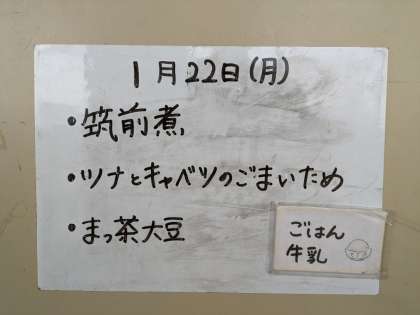 1月22日(月)
・筑前煮
・ツナとキャベツのごまいため
・まっ茶大豆
ごはん
牛乳